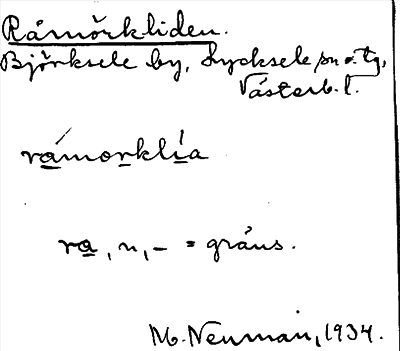 Råmörkliden.
Björksele by, Lycksele sn o. tg,
Västerb. l.
råmorklia
ra, n, – = gräns.
M. Neuman, 1934.